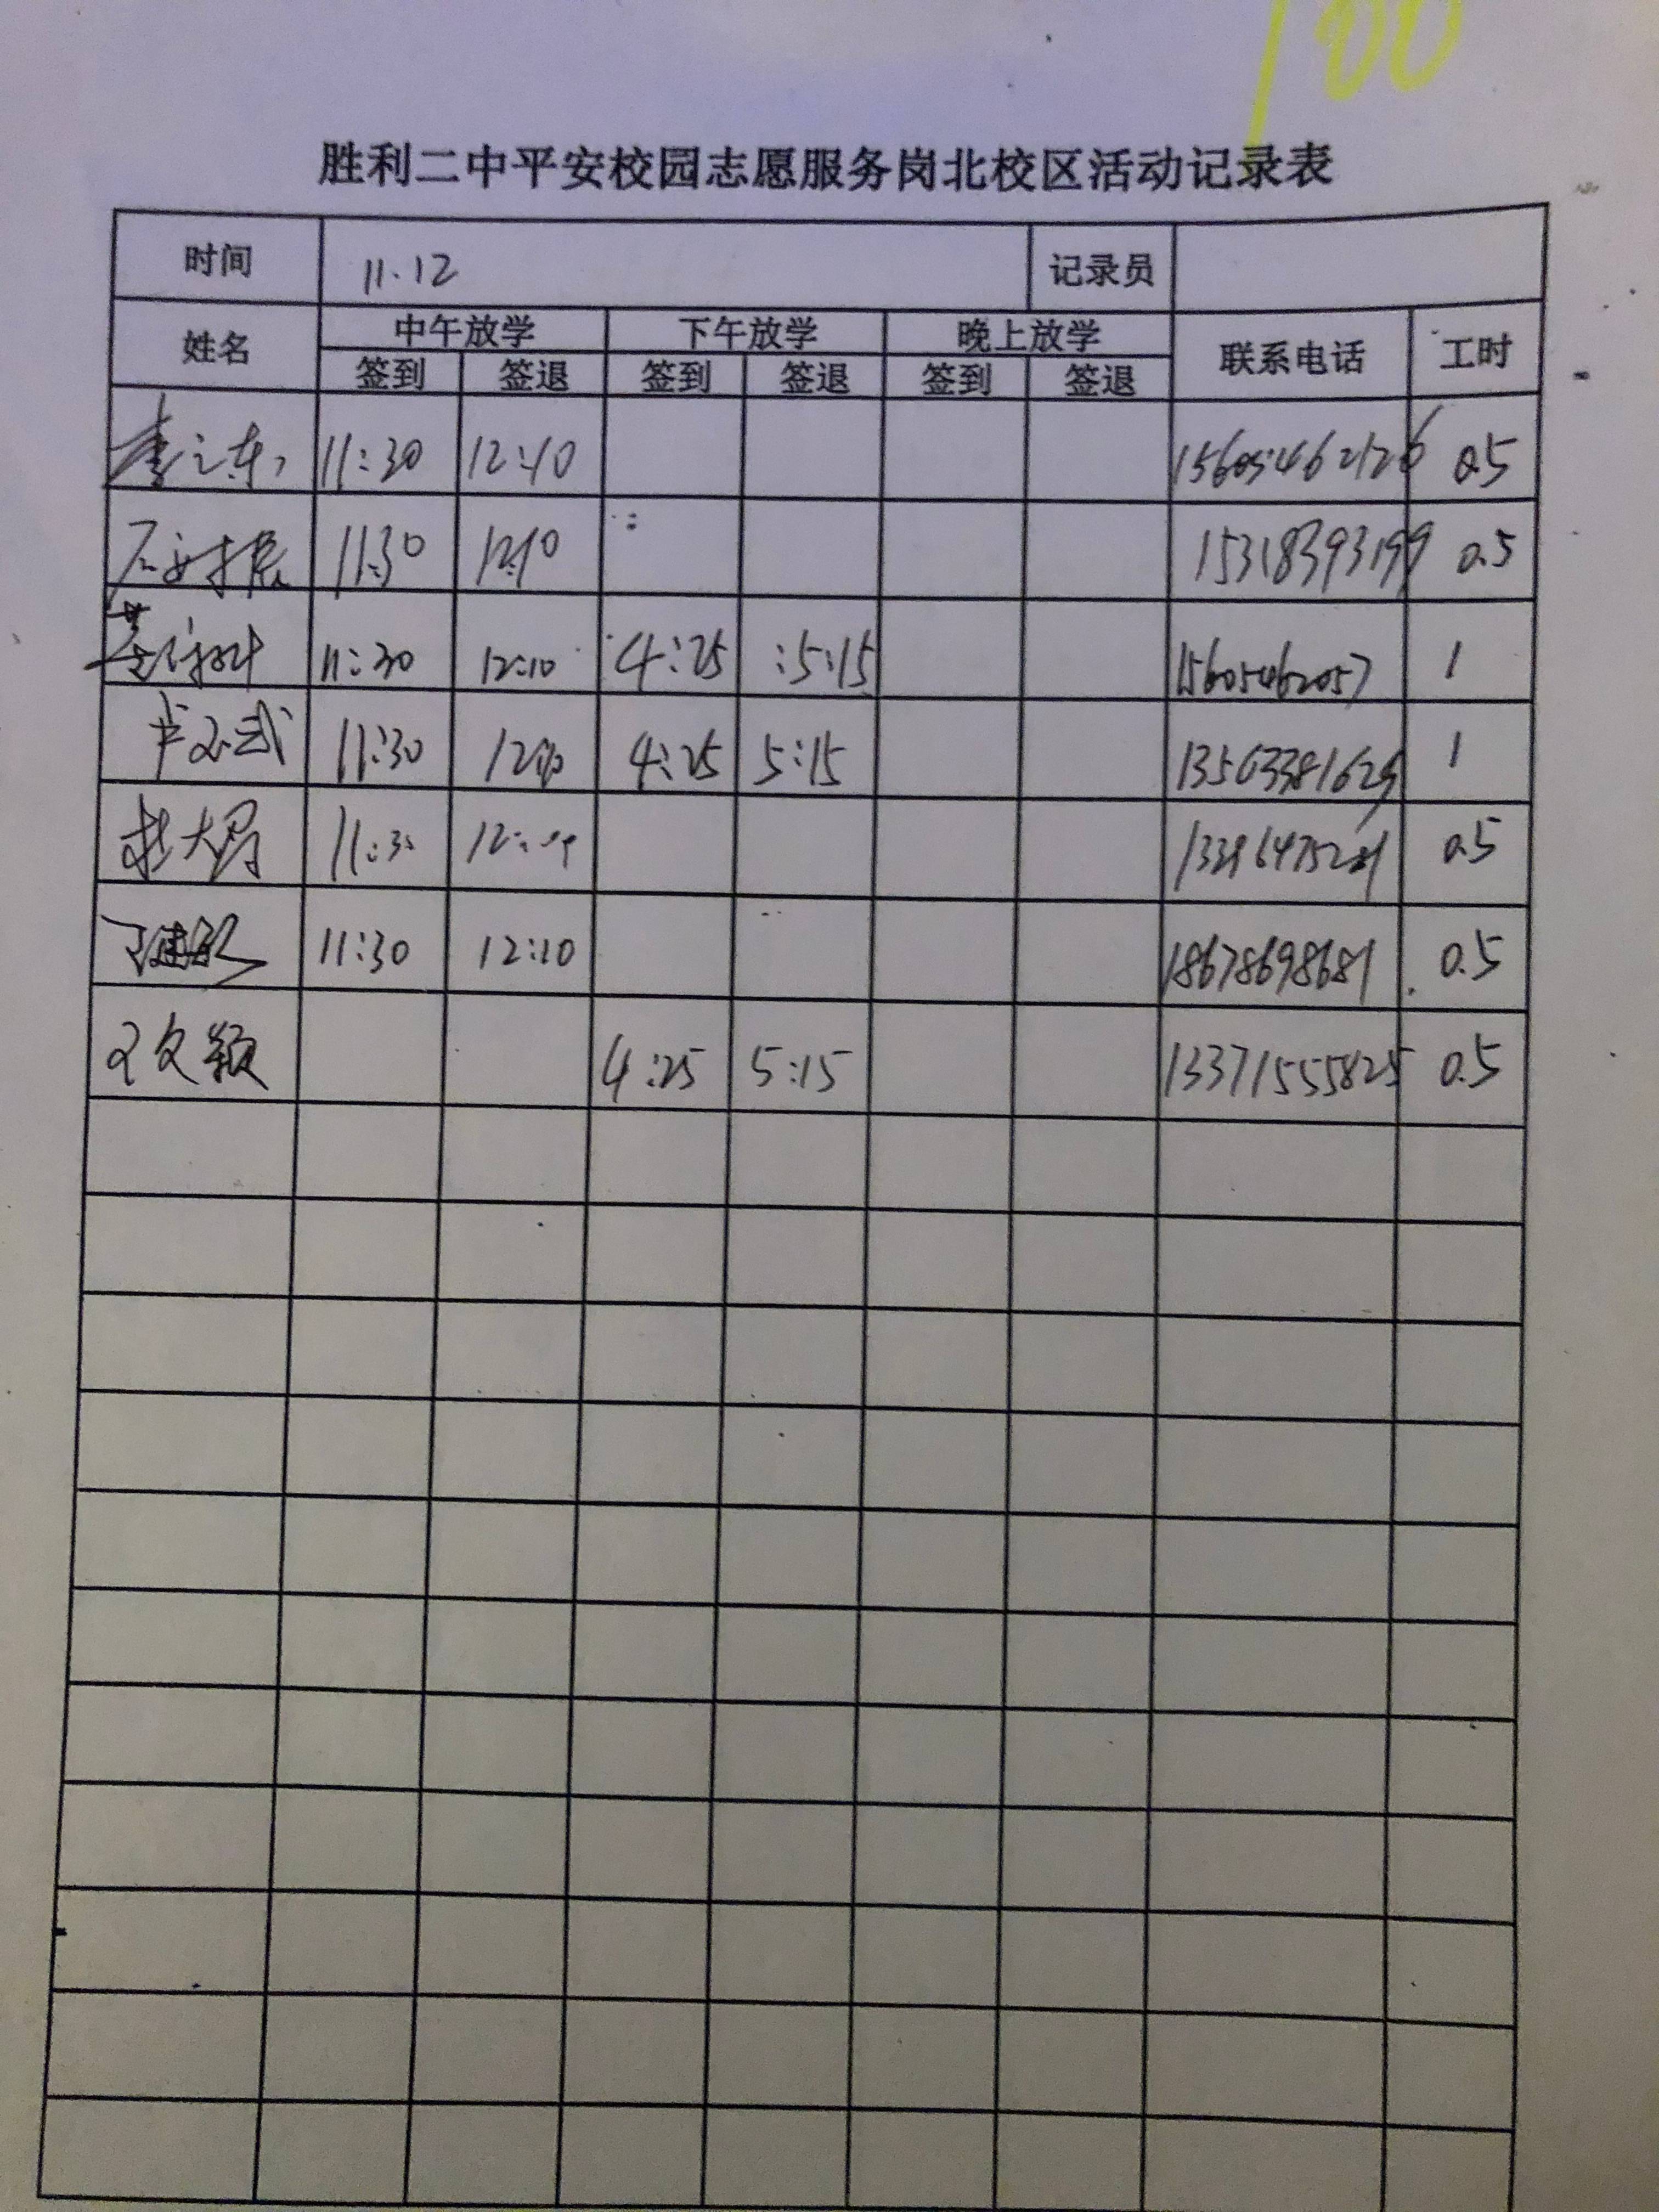 100
胜利二中平安校园志愿服务岗北校区活动记录表
时间 11.12 记录员
姓名 中午放学 下午放学 晚上放学 联系电话 工时
签到 签退 签到 签退 签到 签退
11:30 12:10 15605462126 0.5
11:30 12:10 15318393199 0.5
11:30 12:10 4:25 5:15 15605462057 1
11:30 12:10 4:25 5:15 13563381629 1
0.5
11:30 12:10 18678698681 0.5
文颖 4:25 5:15 13371555825 0.5